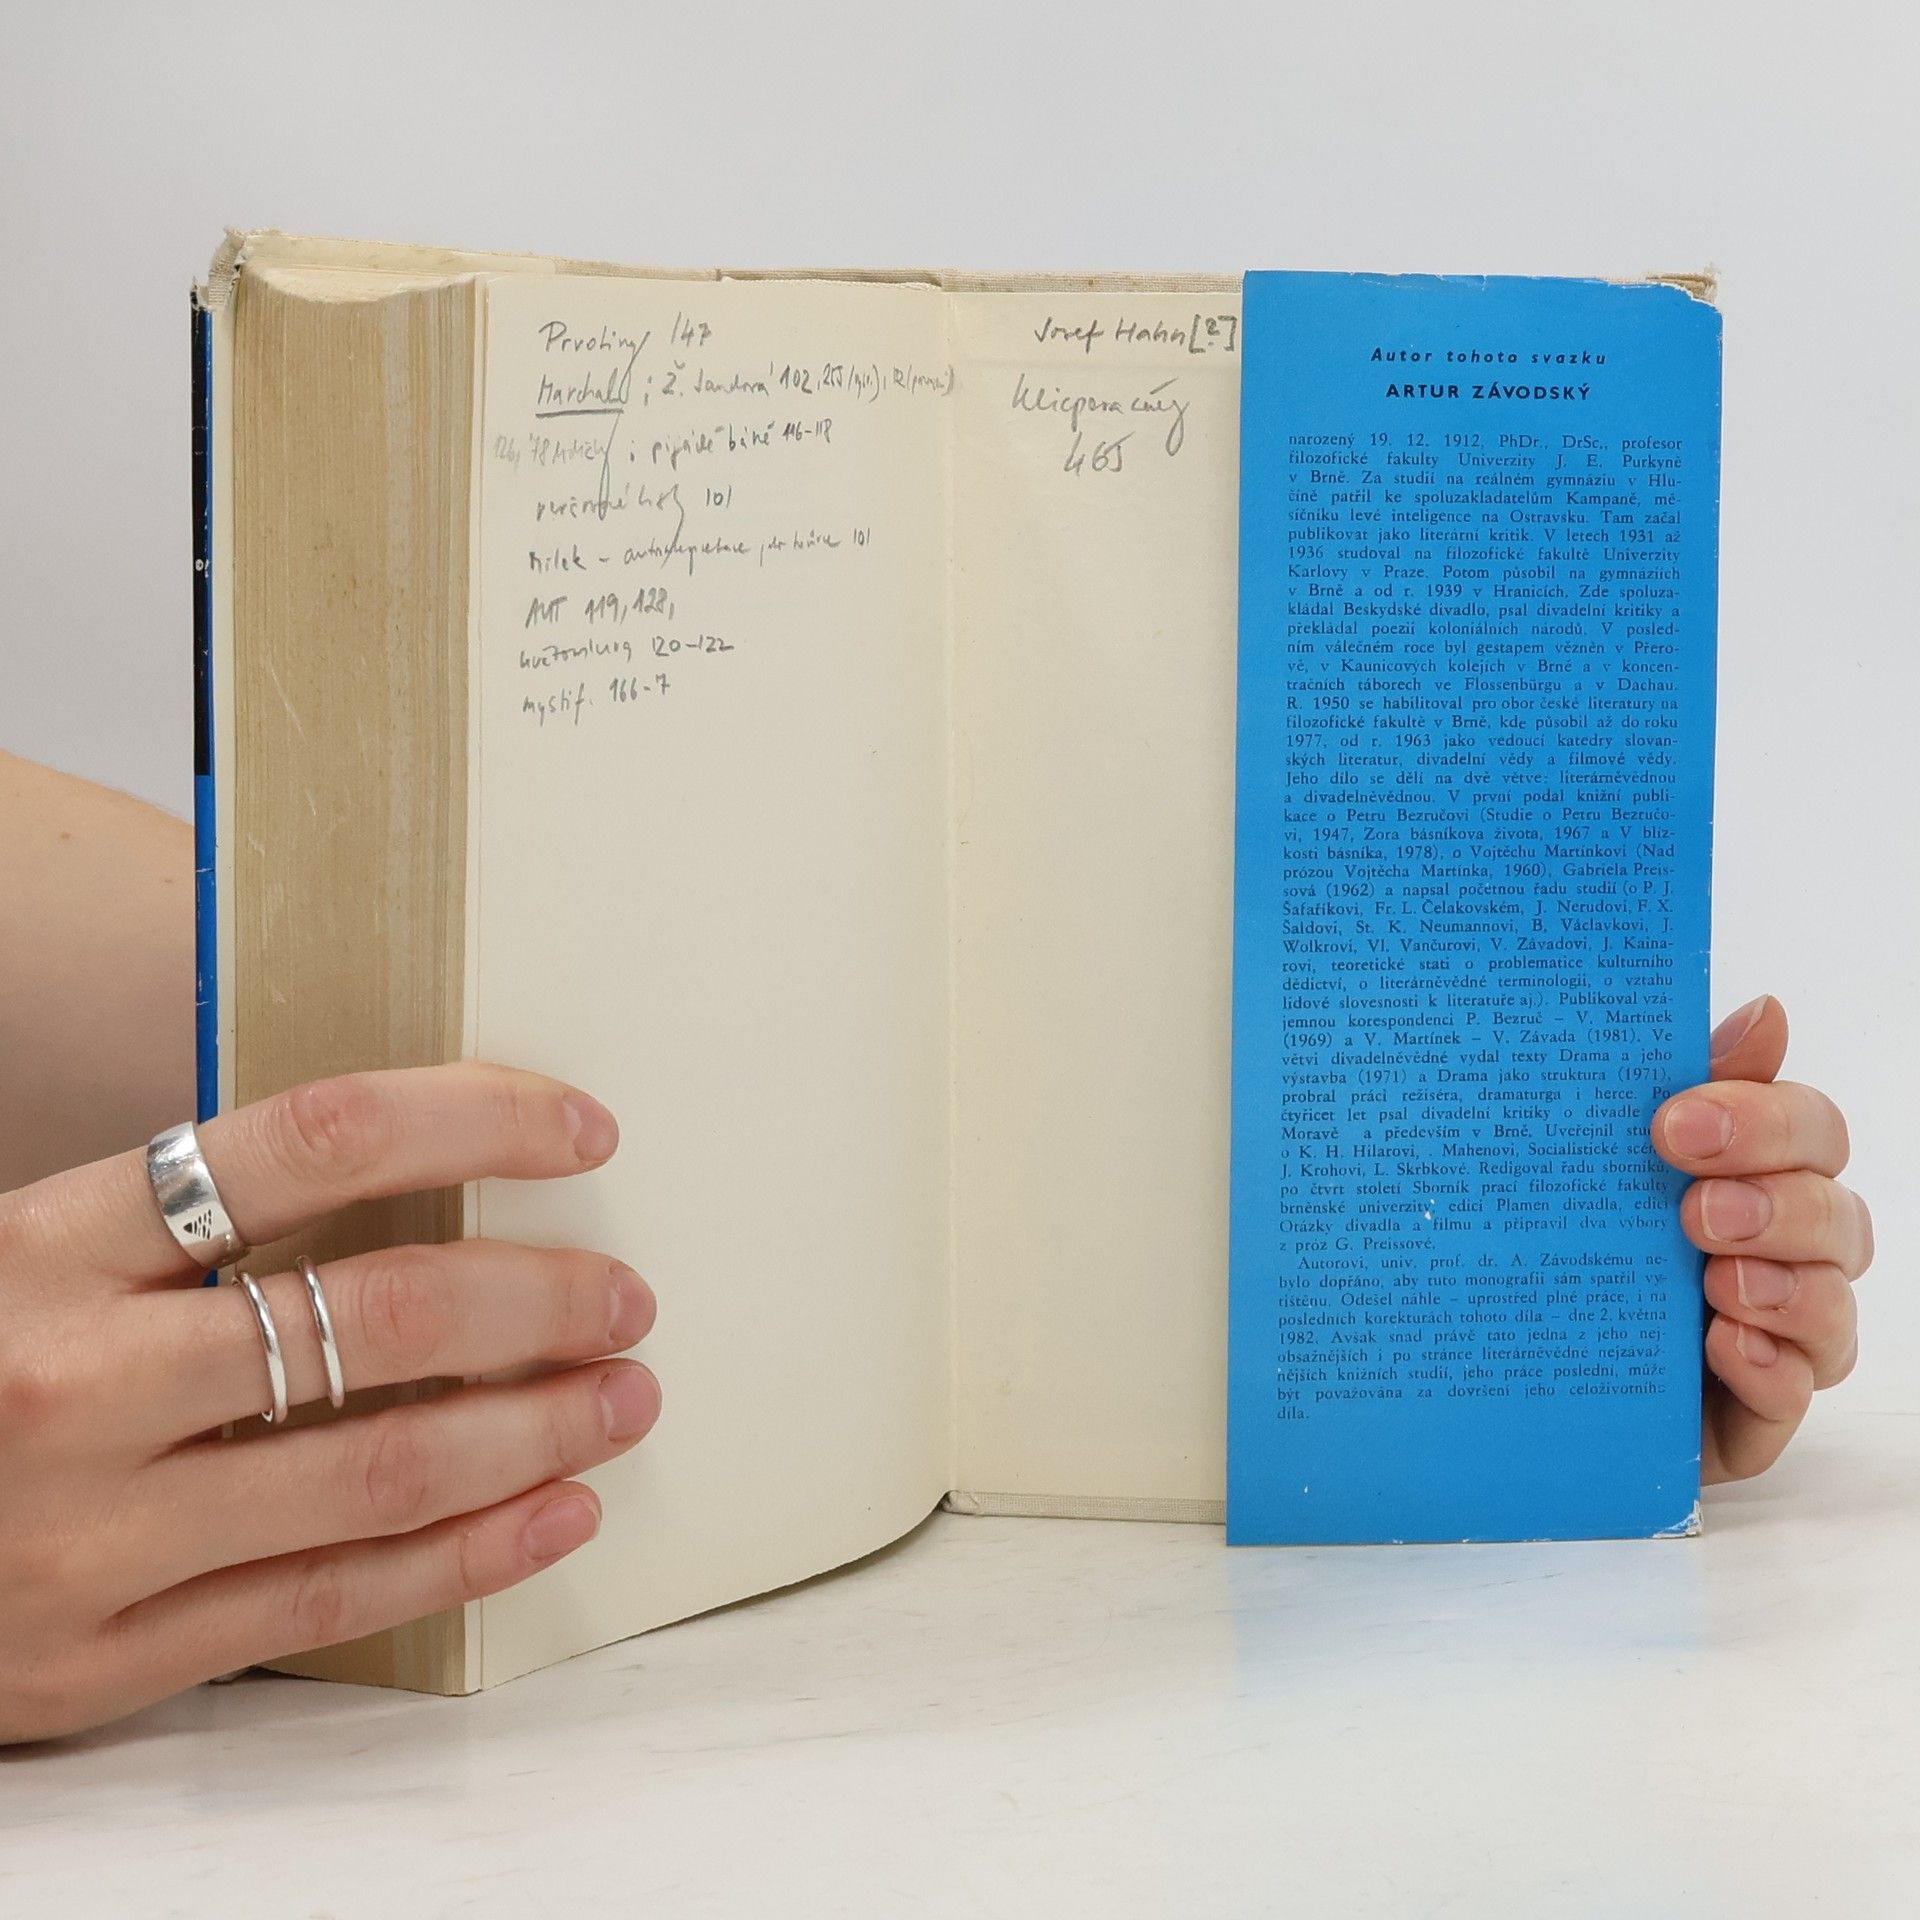 Prvotiny 147
Marchal ; Ž. Sandová 102,
; pijácké básně 116-118
101
Milek - 101
AUT 119, 128,
květomluva 120-122
mystif. 166-7
Josef Hahn [?]
Klicpera
465
Autor tohoto svazku
ARTUR ZÁVODSKÝ
narozený 19. 12. 1912, PhDr., DrSc., profesor
filozofické fakulty Univerzity J. E. Purkyně
v Brně. Za studií na reálném gymnáziu v Hlu-
číně patřil ke spoluzakladatelům Kampaně, mě-
síčníku levé inteligence na Ostravsku. Tam začal
publikovat jako literární kritik. V letech 1931 až
1936 studoval na filozofické fakultě Univerzity
Karlovy v Praze. Potom působil na gymnáziích
v Brně a od r. 1939 v Hranicích. Zde spoluza-
kládal Beskydské divadlo, psal divadelní kritiky a
překládal poezii koloniálních národů. V posled-
ním válečném roce byl gestapem vězněn v Přero-
vě, v Kaunicových kolejích v Brně a v koncen-
tračních táborech ve Flossenbürgu a v Dachau.
R. 1950 se habilitoval pro obor české literatury na
filozofické fakultě v Brně, kde působil až do roku
1977, od r. 1963 jako vedoucí katedry slovan-
ských literatur, divadelní vědy a filmové vědy.
Jeho dílo se dělí na dvě větve: literárněvědnou
a divadelněvědnou. V první podal knižní publi-
kace o Petru Bezručovi (Studie o Petru Bezručo-
vi, 1947, Zora básníkova života, 1967 a V blíz-
kosti básníka, 1978), o Vojtěchu Martínkovi (Nad
prózou Vojtěcha Martínka, 1960), Gabriela Preis-
sová (1962) a napsal početnou řadu studií (o P. J.
Šafaříkovi, Fr. L. Čelakovském, J. Nerudovi, F. X.
Šaldovi, St. K. Neumannovi, B. Václavkovi, J.
Wolkrovi, Vl. Vančurovi, V. Závadovi, J. Kaina-
rovi, teoretické stati o problematice kulturního
dědictví, o literárněvědné terminologii, o vztahu
lidové slovesnosti k literatuře aj.). Publikoval vzá-
jemnou korespondenci P. Bezruč – V. Martínek
(1969) a V. Martínek – V. Závada (1981). Ve
větvi divadelněvědné vydal texty Drama a jeho
výstavba (1971) a Drama jako struktura (1971),
probral práci režiséra, dramaturga i herce. Po
čtyřicet let psal divadelní kritiky o divadle
Moravě a především v Brně. Uveřejnil
o K. H. Hilarovi, . Mahenovi, Socialistické
J. Krohovi, L. Skrbkové. Redigoval řadu sborníků,
po čtvrt století Sborník prací filozofické fakulty
brněnské univerzity, edici Plamen divadla, edici
Otázky divadla a filmu a připravil dva výbory
z próz G. Preissové.
Autorovi, univ. prof. dr. A. Závodskému ne-
bylo dopřáno, aby tuto monografii sám spatřil vy-
tištěnu. Odešel náhle – uprostřed plné práce, i na
posledních korekturách tohoto díla – dne 2. května
1982. Avšak snad právě tato jedna z jeho nej-
obsažnějších i po stránce literárněvědné nejzávaž-
nějších knižních studií, jeho práce poslední, může
být považována za dovršení jeho celoživotního
díla.